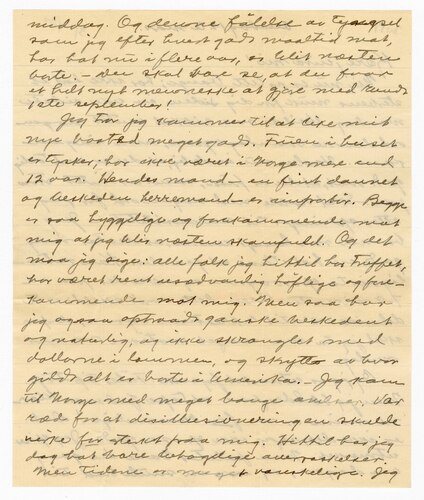 middag. Og denne følelse av tyngsel
som jeg efter hvert gods maaltid mat,
har bat nu i flere aar, er blit næsten
borte. – Du skal bare se, at du faar
et helt nyt menneske at gjøre med kends
1ste september!
Jeg tror jeg kommer til at like mit
nye bosted meget godt. Fruen i huset
er tysker; har ikke været i Norge mere end
12 aar. Hendes mand – en fint dannet
og beskeden herremand – er innfortir. Begge
er saa hyggelige og forekommende mot
mig at jeg blir næsten skamfuld. Og det
maa jeg sige: alle folk jeg hittil har truffet,
har været rent usedvanlig høflige og fore-
kommende mot mig. Men saa har
jeg ogsaa optraadt ganske beskedent
og naturlig, og ikke skranglet med
dollarne i lommen, og skrytt av hvor
gildt alt er borte i Amerika. Jeg kom
til Norge med meget bange anelser. Var
ræd for at disillusioneringen skulde
virke for sterkt paa mig. Hittil har jeg
dog bat bare behagelige overraskelser.
Men tiderne er meget vanskelige. Jeg